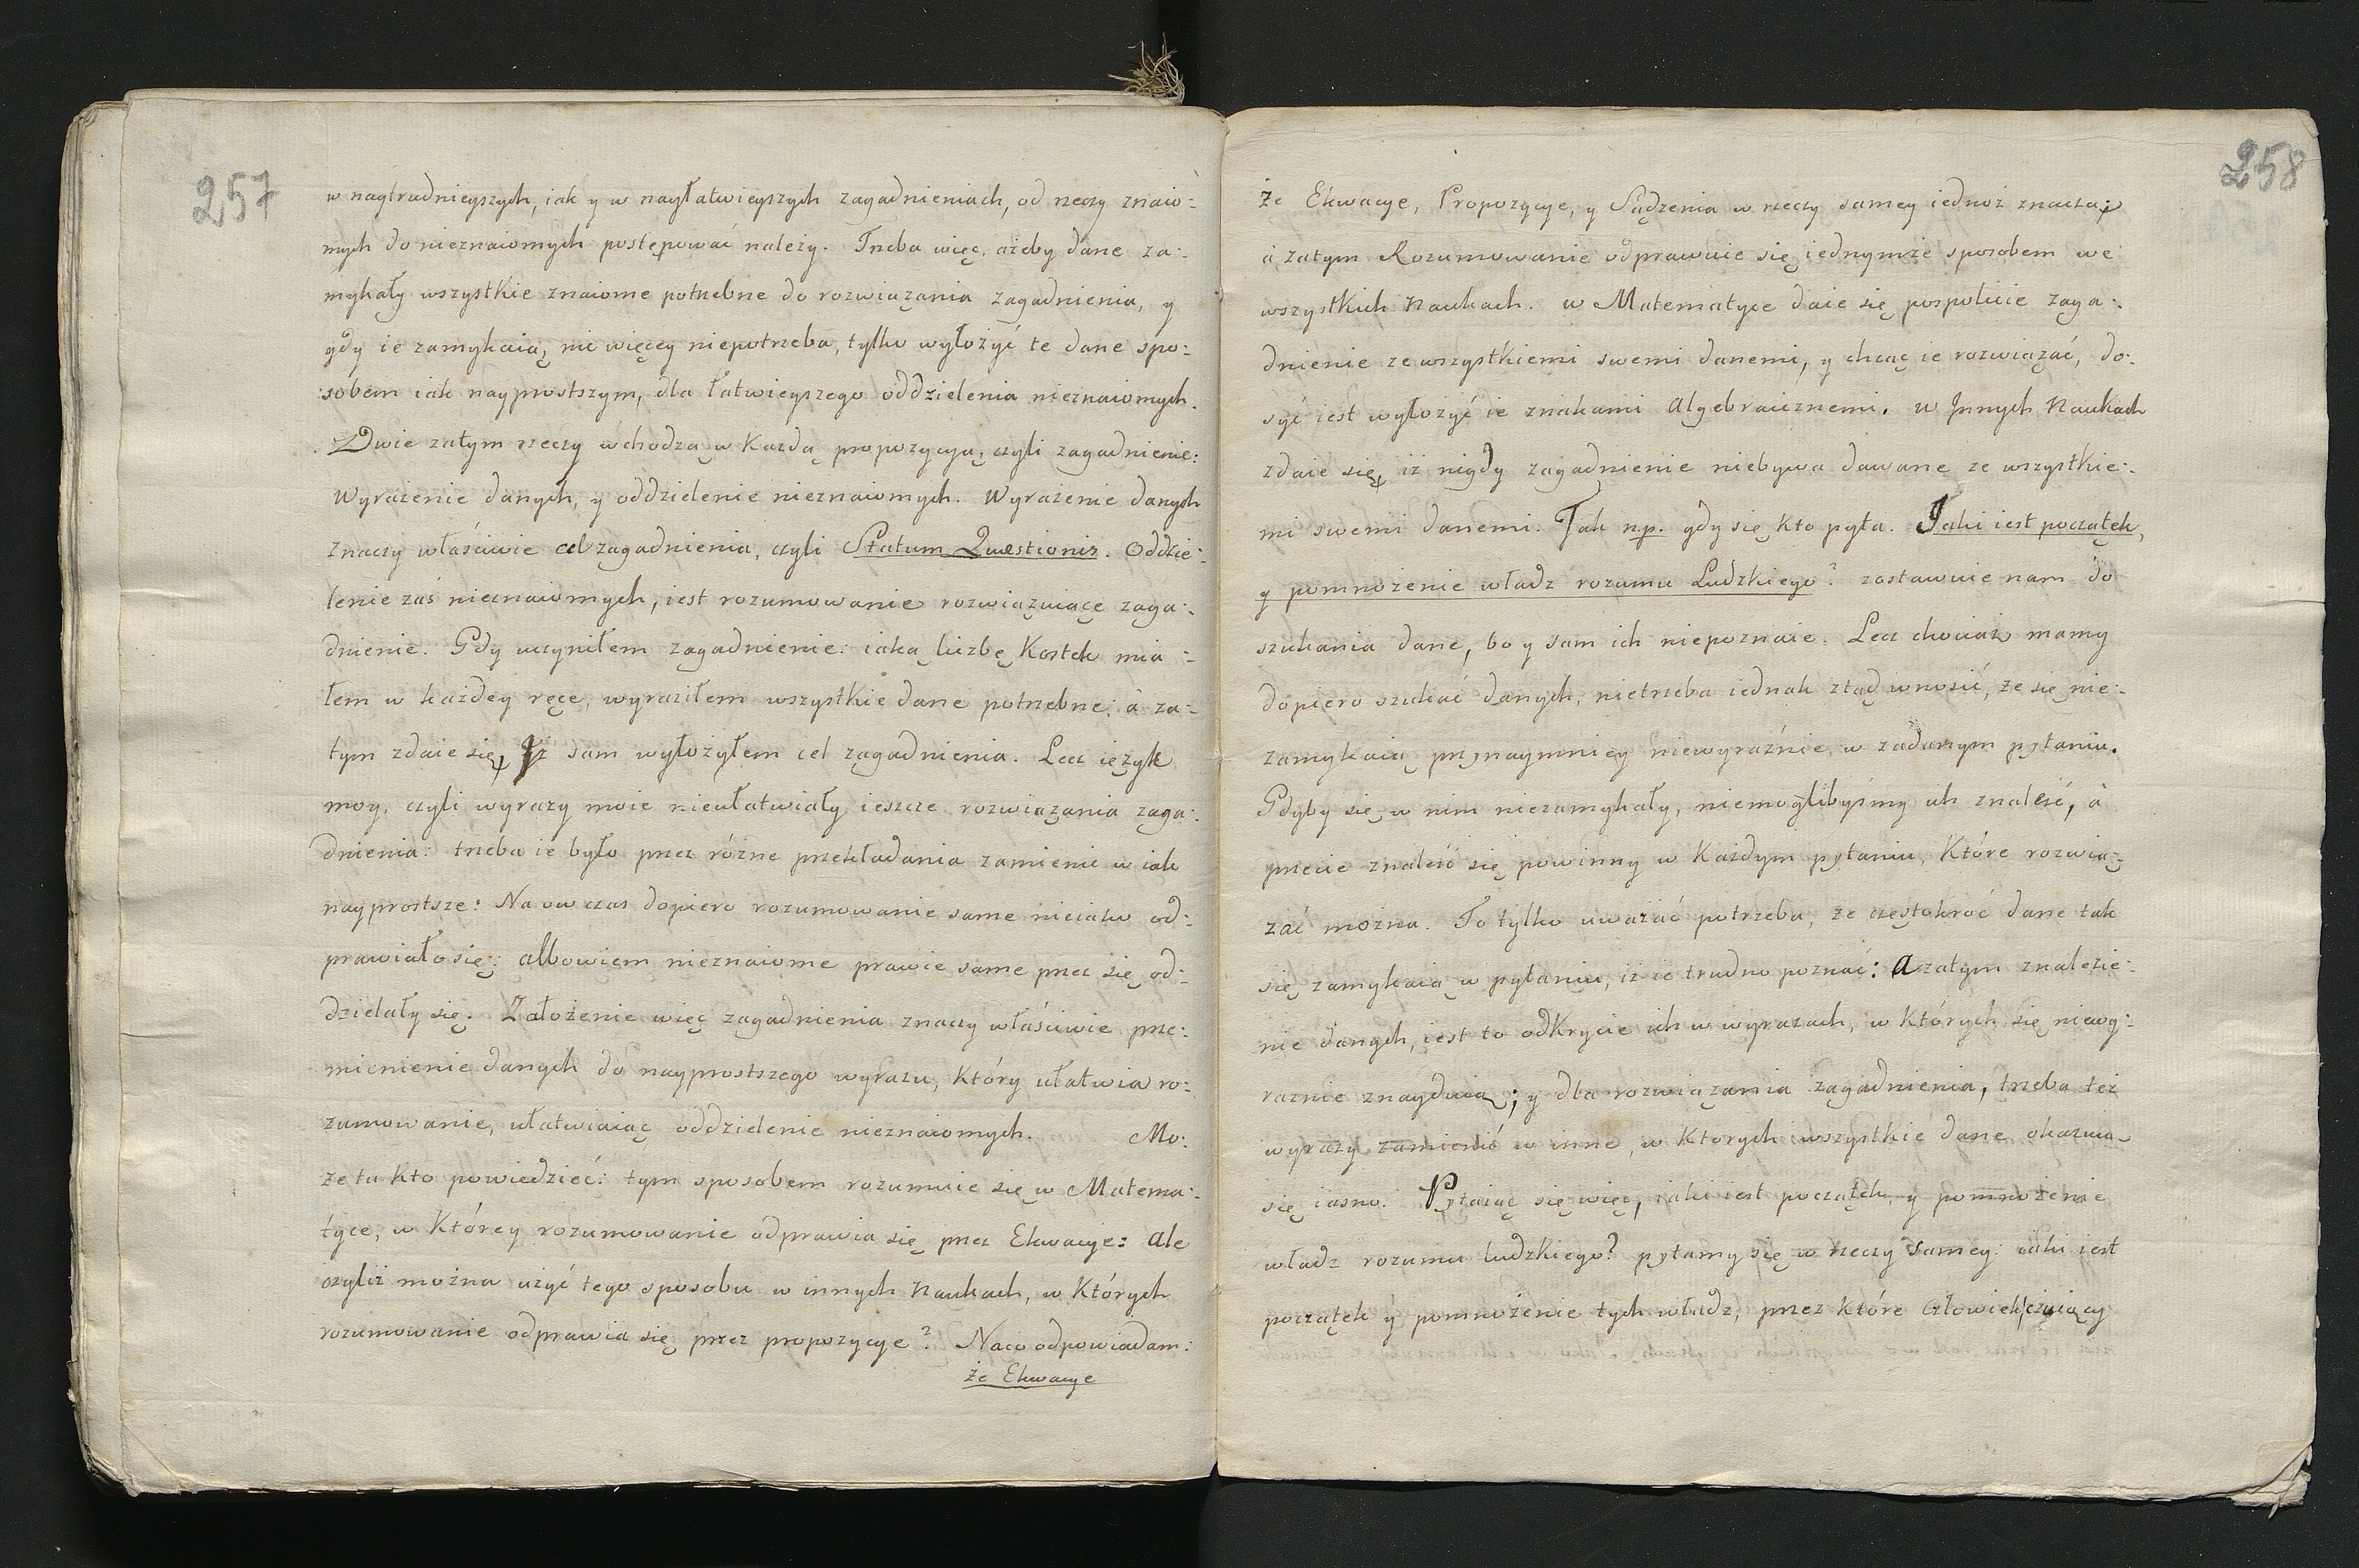 257
w naytrudnieyszych, iak y w nayłatwieyszych zagadnieniach, od rzeczy znaio-:
mych do nieznaiomych postępować należy. Trzeba więc, ażeby dane za-:
mykały wszystkie znaiome potrzebne do rozwiązania zagadnienia, y
gdy ie zamykaią, nic więcey niepotrzeba, tylko wyłożyć te dane spo-:
:sobem iak nayprostszym, dla łatwieyszego oddzielenia nieznaiomych.
Dwie zatym rzeczy wchodzą w każdą propozycyą, czyli zagadnienie:
Wyrażenie danych, y oddzielenie nieznaiomych. Wyrażenie danych
znaczy właściwie cel zagadnienia, czyli Statum Quæstionis. Oddzie-:
lenie zaś nieznaiomych, iest rozumowanie rozwiązuiące zaga-:
dnienie. Gdy uczyniłem zagadnienie: iaką liczbę Kostek mia-:
łem w każdey ręce, wyraziłem wszystkie dane potrzebne; à za-:
tym zdaie się, Iż sam wyłożyłem cel zagadnienia. Lecz ięzyk
moy, czyli wyrazy moie nieułatwiały ieszcze rozwiązania zaga-:
dnienia: trzeba ie było przez różne przekładania zamienić w iak
nayprostsze: Na ow czas dopiero rozumowanie same nieiako od-:
prawiało się; albowiem nieznaiome prawie same przez się od-:
dzielały się. Założenie więc zagadnienia znaczy właściwie prze-:
mienienie danych do nayprostszego wyrazu, który ułatwia ro-:
zumowanie, ułatwiaiąc oddzielenie nieznaiomych. Mo-:
że tu kto powiedzieć: tym sposobem rozumuie się w Matema-:
tyce, w Którey rozumowanie odprawia się przez Ekwacye: ale
czyliż można użyć tego sposobu w innych Naukach, w Których
rozumowanie odprawia się przez propozycye? Na co odpowiadam:
że Ekwacye
258
że Ekwacye, Propozycye, y Sądzenia w rzeczy samey iednoż znaczą;
à zatym Rozumowanie odprawuie się iednymże sposobem we
wszystkich Naukach. w Matematyce daie się pospolicie zaga-:
dnienie ze wszystkiemi swemi danemi, y chcąc ie rozwiązać, do-:
syć iest wyłożyć ie znakami Algebraicznemi. w Innych Naukach
zdaie się, iż nigdy zagadnienie niebywa dawane ze wszystkie-:
mi swemi danemi. Tak n.p. gdy się kto pyta. Iaki iest początek,
y pomnożenie władz rozumu Ludzkiego? zostawuie nam do
szukania dane, bo y sam ich niepoznaie. Lecz chociaż mamy
dopiero szukać danych, nietrzeba iednak ztąd wnosić, że się nie-:
zamykaią przynaymniey niewyraźnie w zadanym pytaniu.
Gdyby się w nim niezamykały, niemoglibyśmy ich znaleść, à
przecie znaleść się powinny w Każdym pytaniu, Które rozwią-:
zać można. To tylko uważać potrzeba, że częstokroć dane tak
się zamykaią w pytaniu, iż ie trudno poznać: A zatym znalezie-:
nie danych, iest to odkrycie ich w wyrazach, w Których się niewy-:
raźnie znayduią; y dla rozwiązania zagadnienia, trzeba też
wyrazy zamienić w inne, w Ktorych wszystkie dane okazuią
się iasno. Pytaiąc się więc, iaki iest początek y pomnożenie
władz rozumu ludzkiego? pytamy się w rzeczy samey: iaki iest
początek y pomnożenie tych władz, przez które Człowiek czuiący